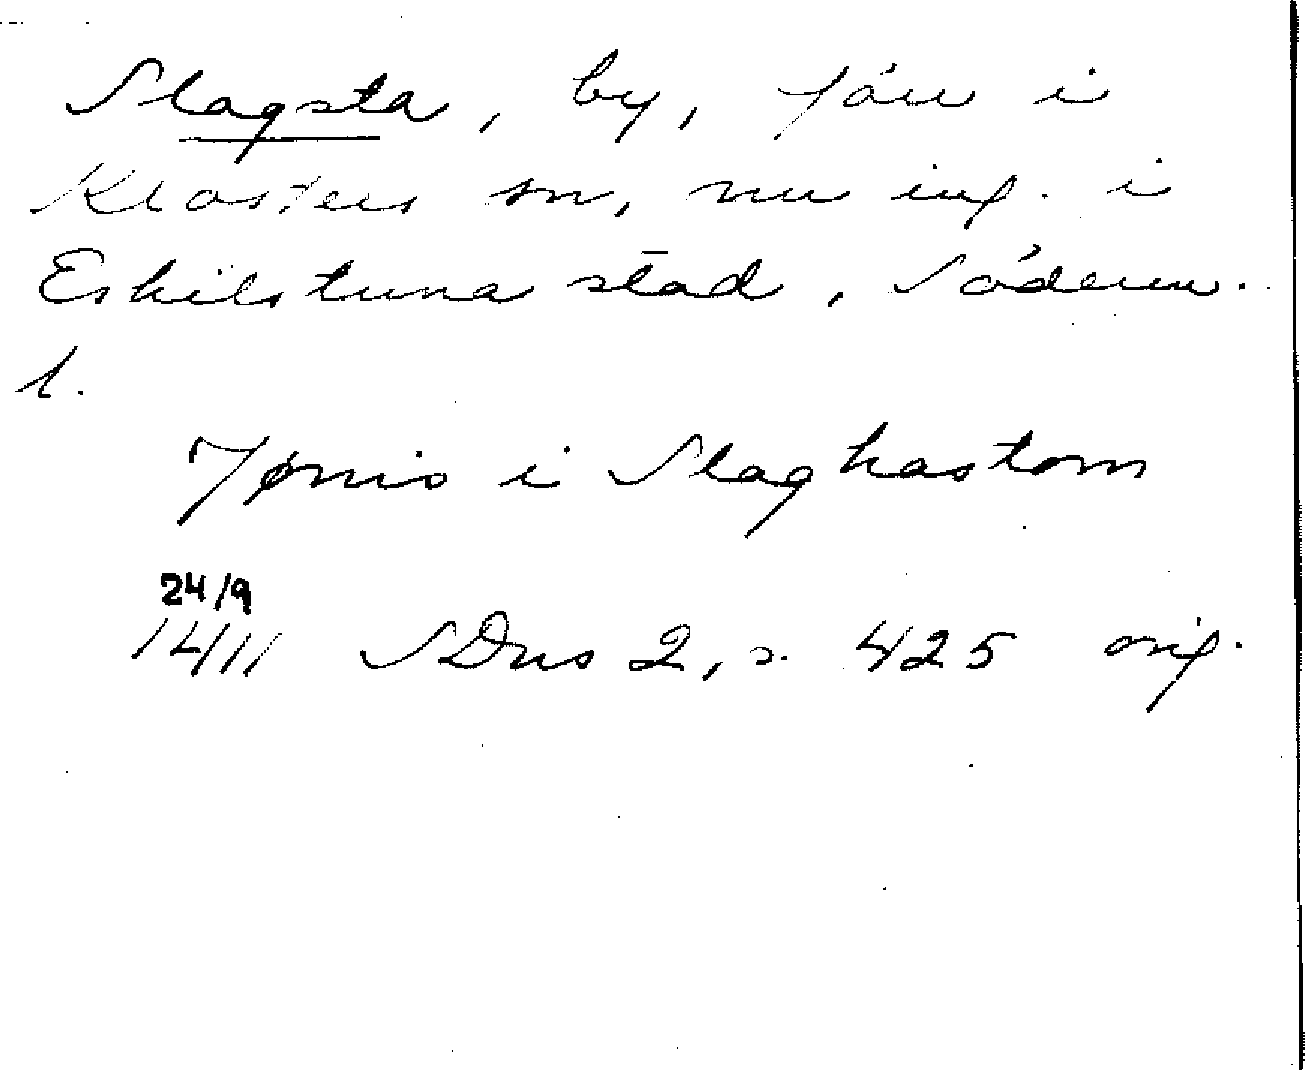 Slagsta, by, förr i
Klosters sn, nu ing. i
Eskilstuna stad, Söderm.
l.
Jønis i Slaghastom
24/9
1411 SDns 2, s. 425 orig.